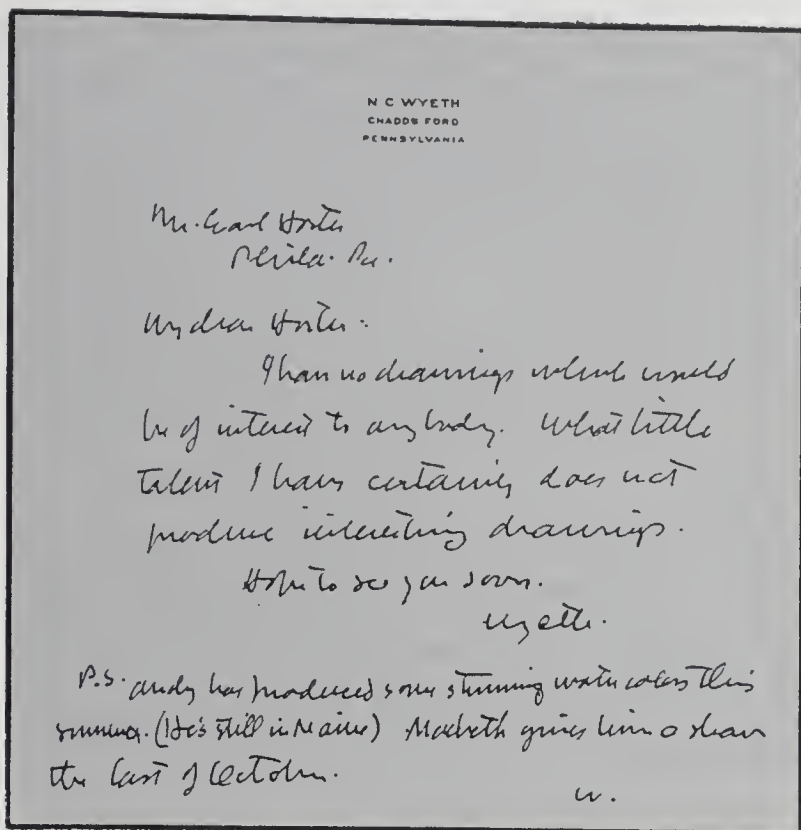 N C WYETH
CHADDS FORD
PENNSYLVANIA
Mr. Earl Horter
Phila. Pa.
My dear Horter:
I have no drawings which would
be of interest to anybody. What little
talent I have certainly does not
produce interesting drawings.
Hope to see you soon.
Wyeth.
P.S. Andy has produced some stunning water colors this
summer. (He's still in Maine) Macbeth gives him a show
the last of October.
W.